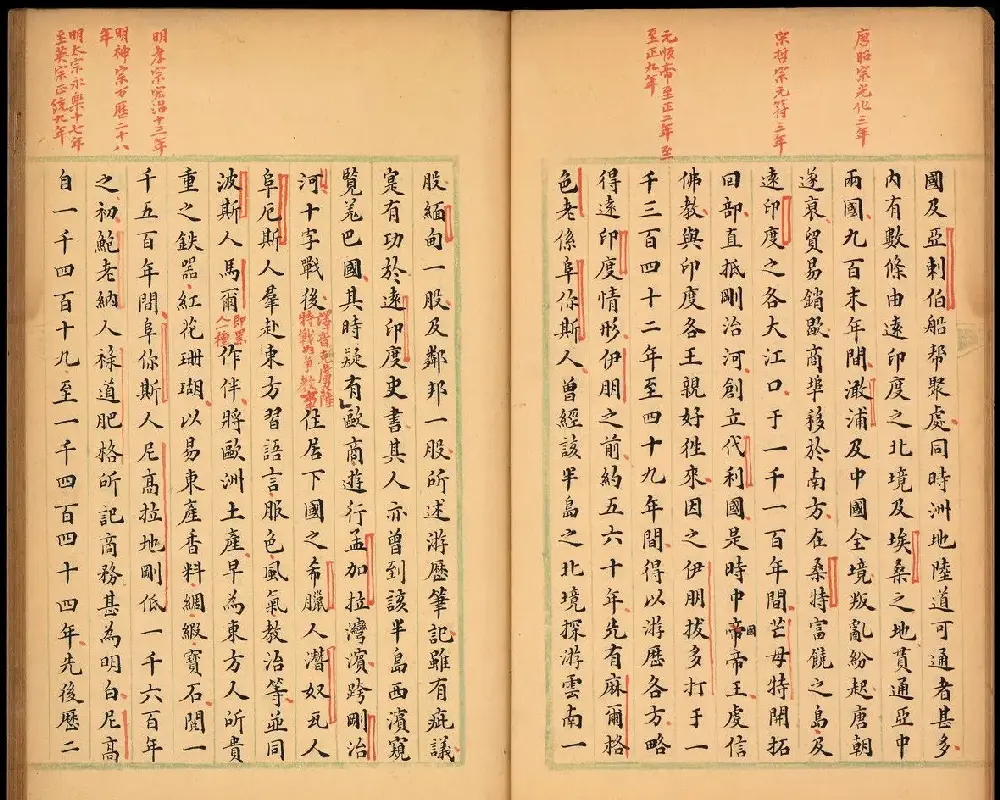 唐昭宗光化三年
宋哲宗元符三年
元順帝至正二年至
至正九年
國及亞剌伯船帮聚處同時洲地陸道可通者甚多
內有數條由遠印度之北境及埃桑之地貫通亞中
兩國九百末年間澉浦及中國全境叛亂紛起唐朝
遂衰貿易銷歇商埠移於南方在桑特富饒之島及
遠印度之各大江口于一千一百年間芒母特開拓
回部直抵剛冶河創立代利國是時中帝國帝王虔信
佛教與印度各王親好徃來因之伊朋拔多打于一
千三百四十二年至四十九年間得以游歷各方略
得遠印度情形伊朋之前約五六十年先有麻爾格
色老係阜你斯人曾經該半島之北境探游雲南一
明孝宗宏治十三年
明神宗万歷二十八
年
明太宗永樂十七年
至英宗正統九年
股緬甸一股及鄰邦一股所述游歷筆記雖有疵議
寔有功於遠印度史書其人亦曾到該半島西濱窺
覽羗巴國其時疑有歐商遊行孟加拉灣濱跨剛冶
河十字戰後住居下國之希臘人潛奴瓦人
阜厄斯人羣赴東方習語言服色風氣教治等並同
波斯人馬爾即黑人一種作伴將歐洲土產早為東方人所貴
重之鉄噐紅花珊瑚以易東產香料綢緞寶石閱一
千五百年間阜你斯人尼高拉地剛低一千六百年
之初鮑老納人祿道肥格所記高務甚為明白尼高
自一千四百十九至一千四百四十四年先後歷二